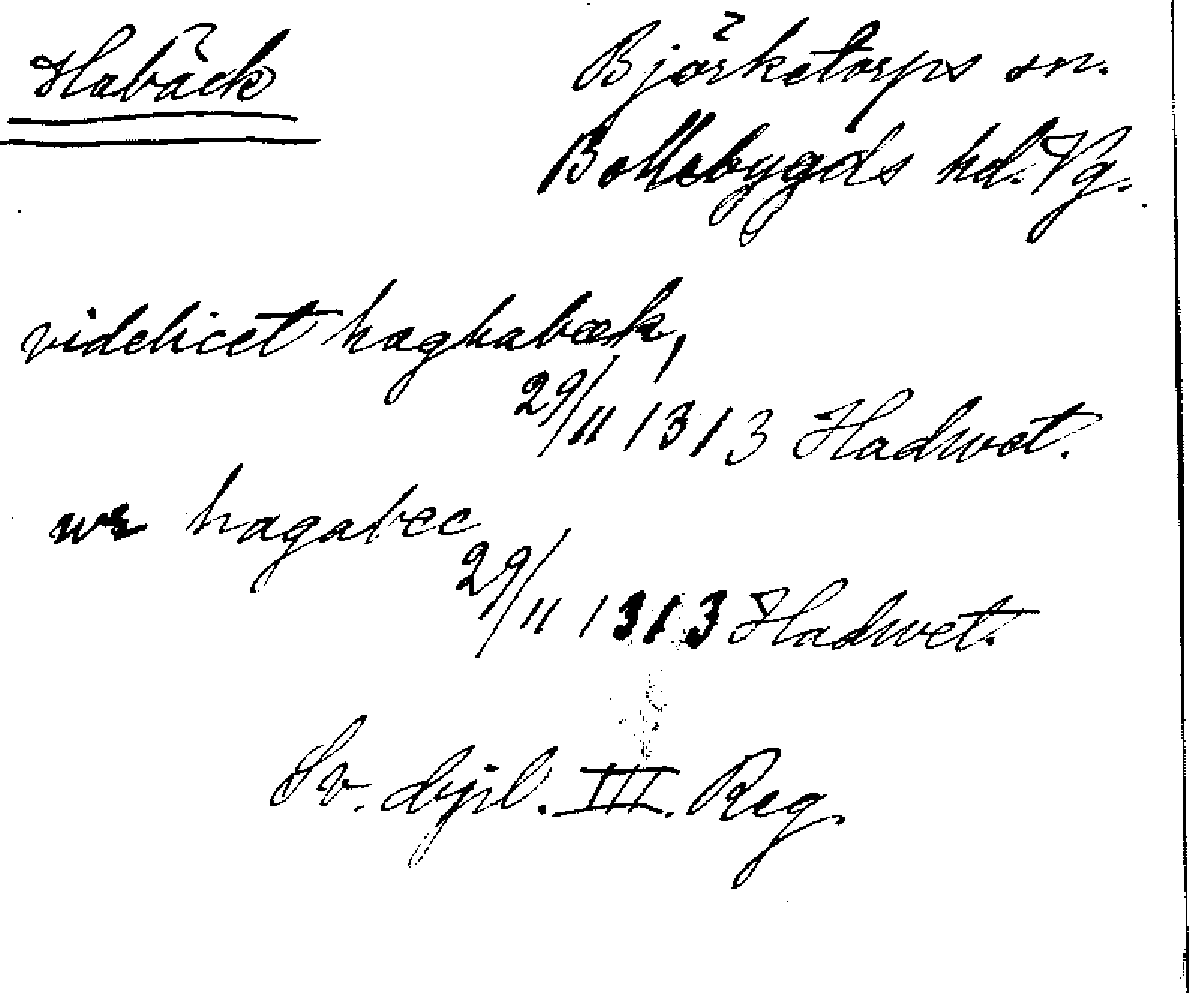 Habäck
Björketorps sn.
Bollebygds hd. Vg.
videlicet haghabæk,
29/11 1313 Hadwet.
wr hagabec
29/11 1313 Hadwet.
Sv. dipl. III. Reg.